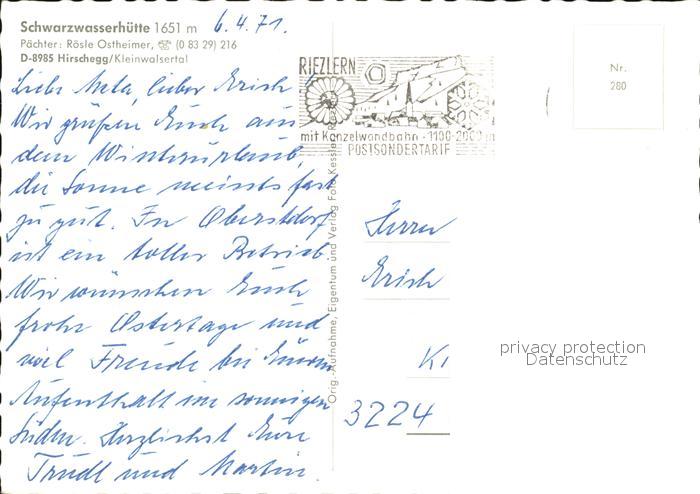 Schwarzwasserhütte 1651 m
6.4.71.
Pächter: Rösle Ostheimer, ☎ (0 83 29) 216
D-8985 Hirschegg/Kleinwalsertal
Liebe Meta, lieber Erich
Wir grüßen Euch aus
dem Winterurlaub,
die Sonne meints fast
zu gut. In Oberstdorf
ist ein toller Betrieb
Wir wünschen Euch
frohe Ostertage und
viel Freude bei Eurem
Aufenthalt im sonnigen
Süden. Herzlichst Eure
Trudl und Martin.
RIEZLERN
mit Kanzelwandbahn · 1100-2000 m
POSTSONDERTARIF
Orig.-Aufnahme, Eigentum und Verlag Foto Kessler,
Nr.
280
Herrn
Erich
Ki
3224
privacy protection
Datenschutz